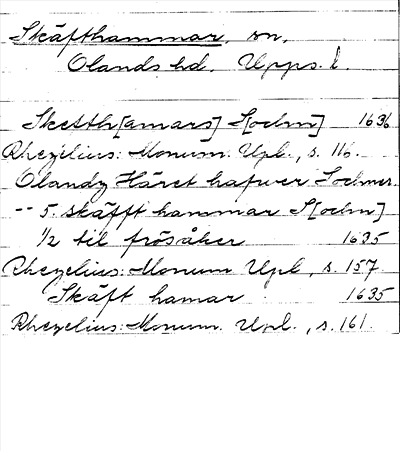 Skäfthammar, sn,
Olands hd. Upps. l.
Skestth[amars] S[ochn] 1636
Rhezelius: Monum. Upl., s. 116.
Olandz Häret hafwer Sochner.
-- 5. skäfft hammar S[ochn]
1/2 til frösåker 1635
Rhezelius: Monum Upl, s. 157
Skäft hamar 1635
Rhezelius: Monum. Upl., s. 161.